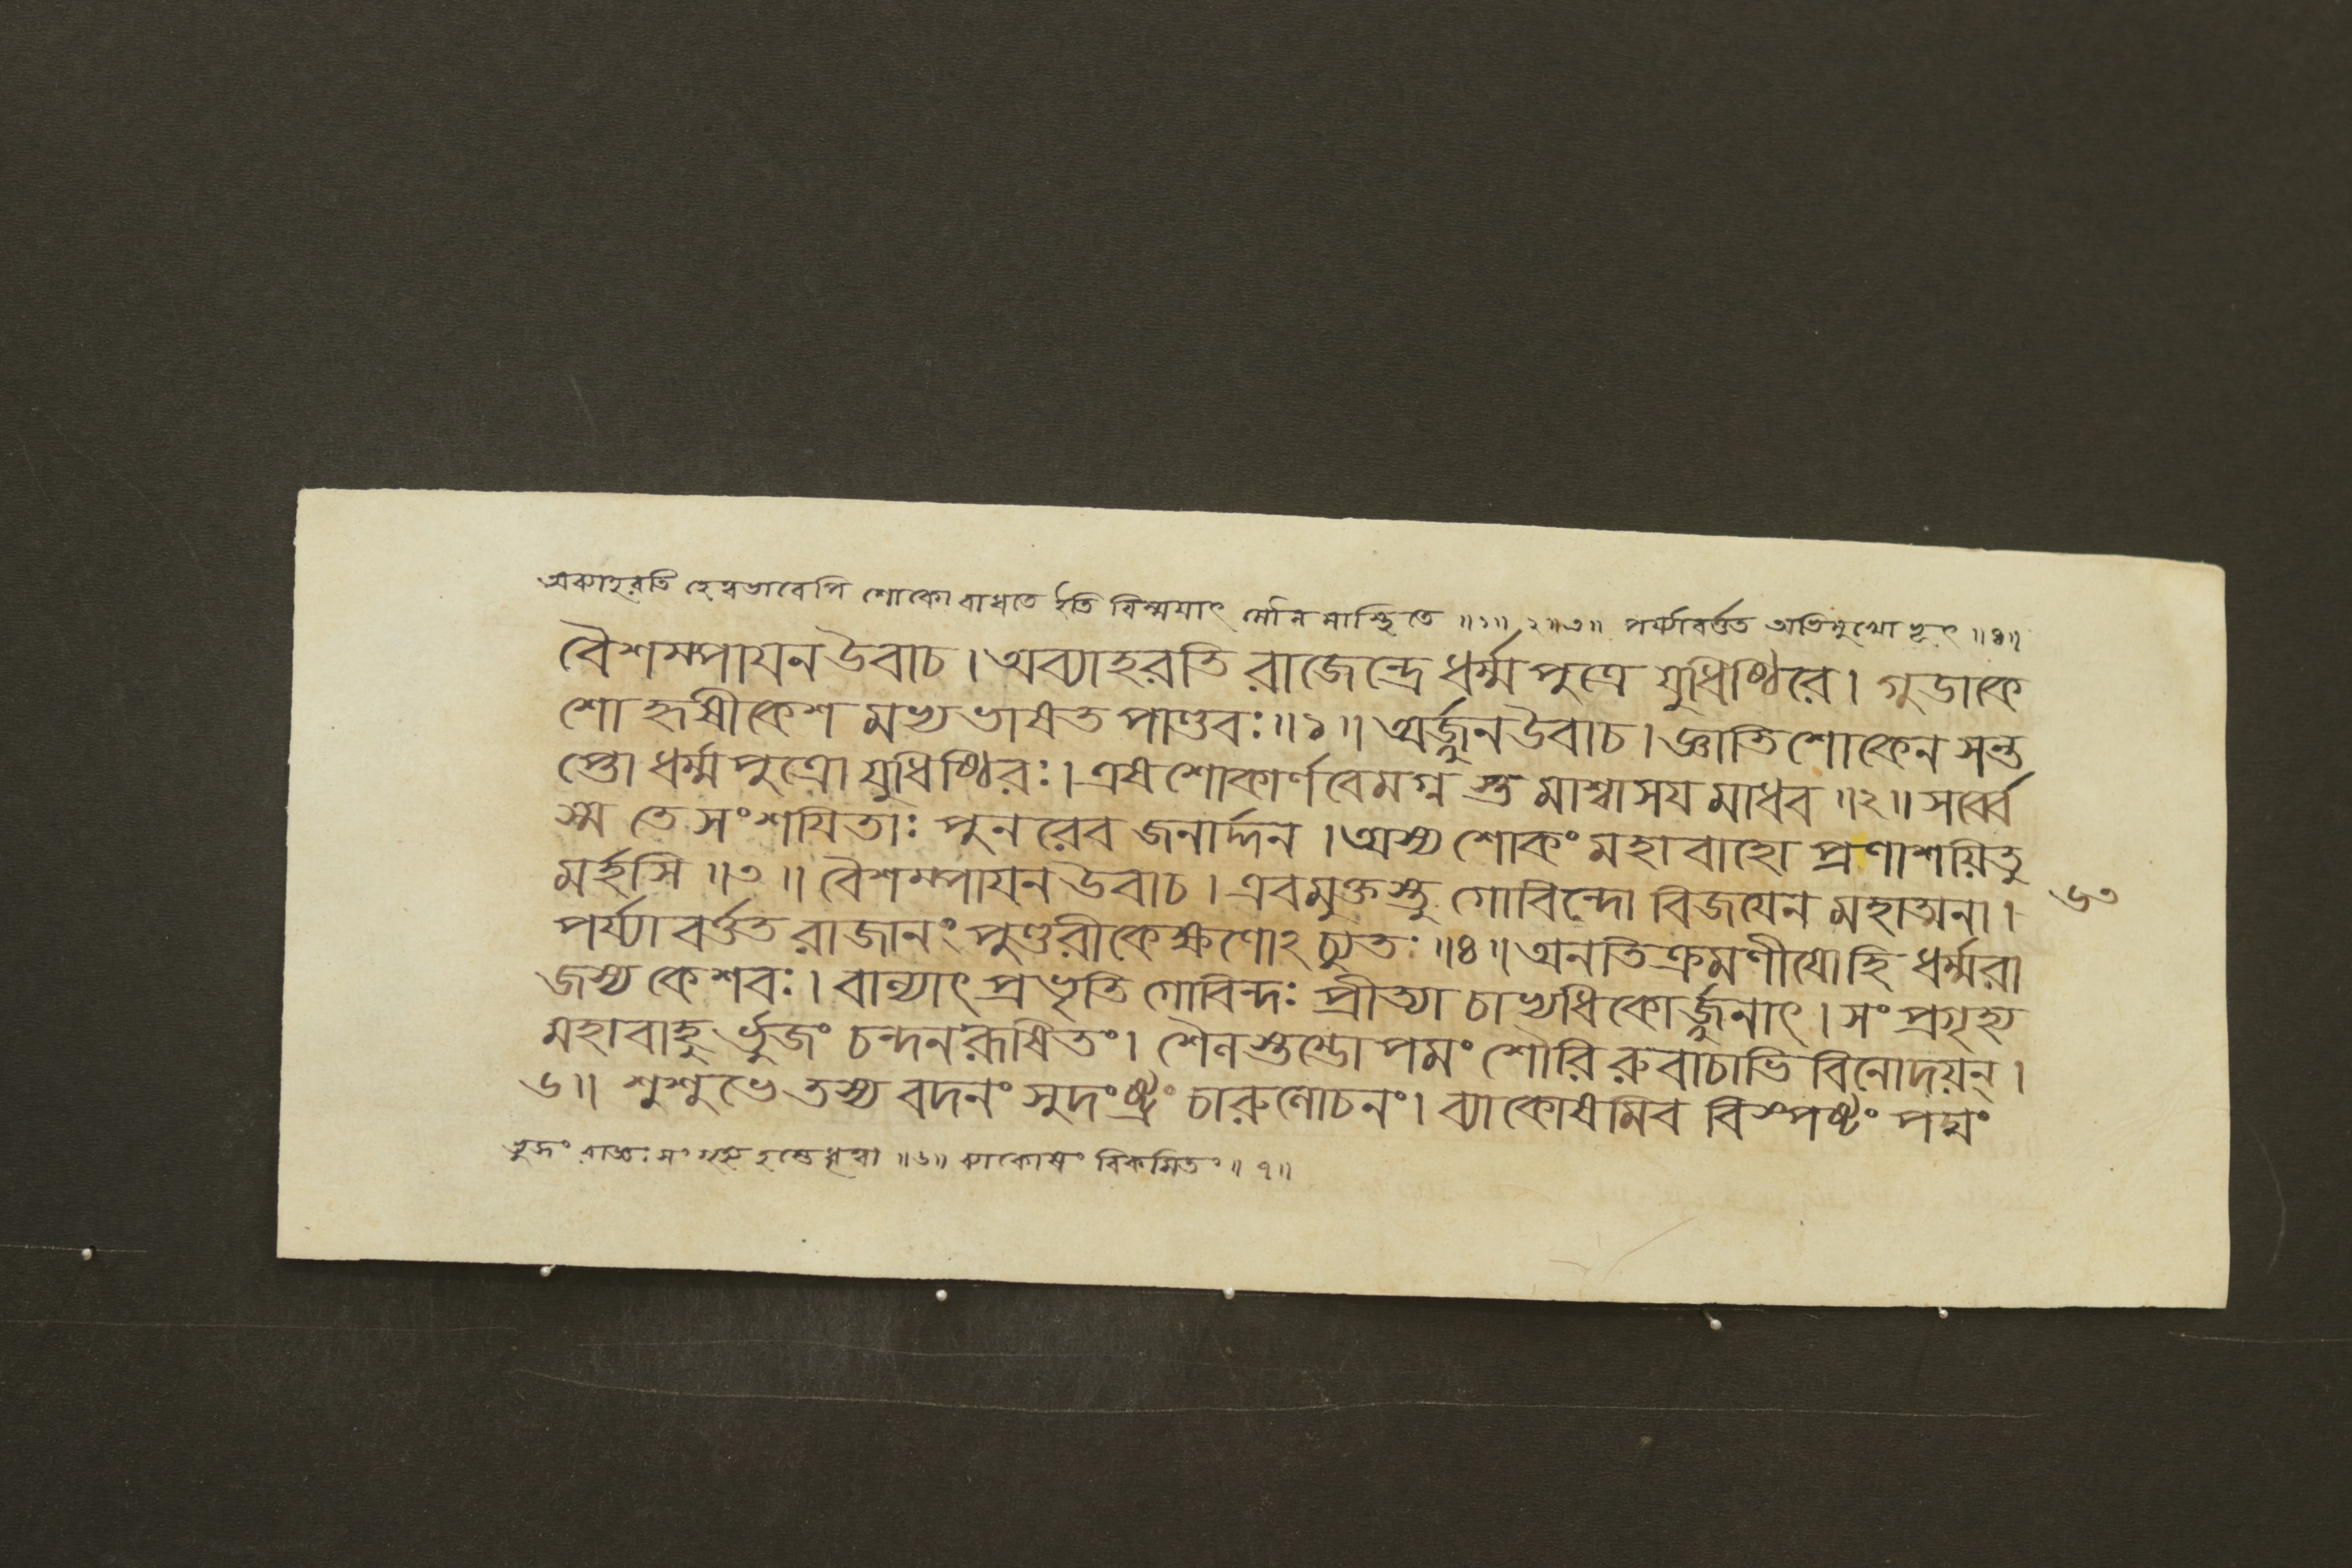 অব্যাহরতি হেত্বভাবেপি শোকো বাধতে ইতি বিস্ময়াৎ মৌনমাস্থিতে ॥১॥ ২॥৩॥ পর্য্যাবর্ত্তত অভিমুখো ভূৎ ॥৪॥
বৈশম্পাযন উবাচ । অব্যাহরতি রাজেন্দ্রে ধর্ম্মপুত্রে যুধিষ্ঠিরে । গুডাকে
শো হৃষীকেশ মভ্যভাষত পাণ্ডবঃ ॥১॥ অর্জ্জুন উবাচ । জ্ঞাতিশোকেন সন্ত
প্তো ধর্ম্মপুত্রো যুধিষ্ঠিরঃ । এষ শোকার্ণবে মগ্ন স্তমাশ্বাসয মাধব ॥২॥ সর্ব্বে
স্ম তে সংশযিতাঃ পুনরেব জনার্দ্দন । অস্য শোকং মহাবাহো প্রণাশয়িতু
মর্হসি ॥৩॥ বৈশম্পাযন উবাচ । এবমুক্তস্তু গোবিন্দো বিজযেন মহাত্মনা ।
৬৩
পর্য্যাবর্ত্তত রাজানং পুণ্ডরীকেক্ষণোঽচ্যুতঃ ॥৪॥ অনতিক্রমণীযোহি ধর্ম্মরা
জস্য কেশবঃ । বাল্যাৎ প্রভৃতি গোবিন্দঃ প্রীত্যা চাভ্যধিকোর্জ্জুনাৎ । সংপ্রগৃহ্য
মহাবাহু র্ভুজং চন্দনরূষিতং । শৈলস্তম্ভোপমং শৌরি রুবাচাভি বিনোদয়ন্ ।
৬॥ শুশুভে তস্য বদনং সুদংষ্ট্রং চারুলোচনং । ব্যাকোষমিব বিস্পষ্টং পদ্মং
ভুজং রাজ্ঞঃ সংগৃহ্য হস্তেধৃত্বা ॥৬॥ ব্যাকোষং বিকসিতং ॥৭॥